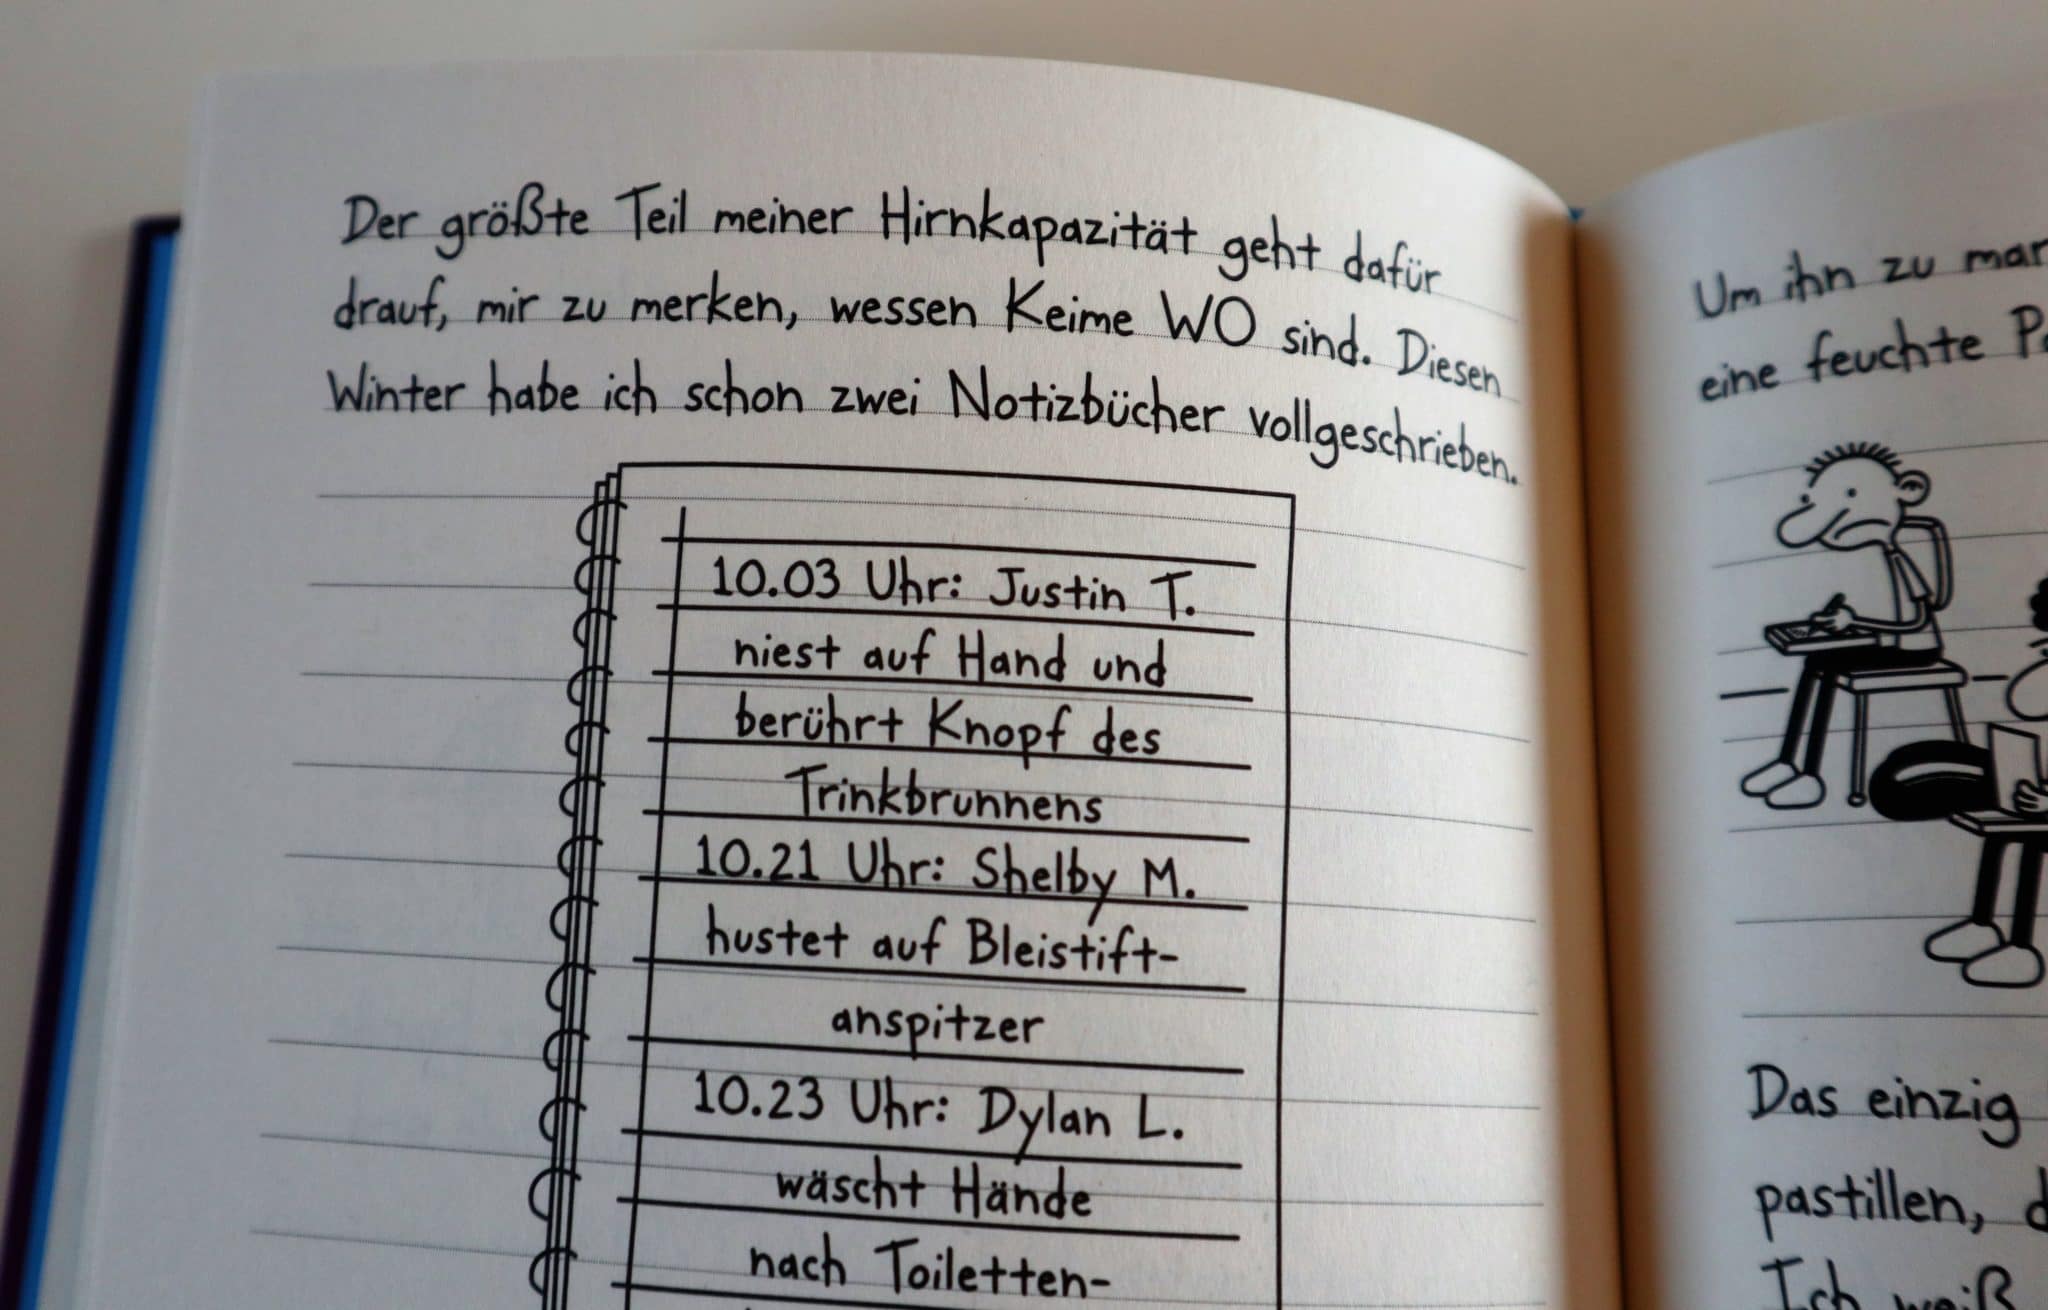 Der größte Teil meiner Hirnkapazität geht dafür
drauf, mir zu merken, wessen Keime WO sind. Diesen
Winter habe ich schon zwei Notizbücher vollgeschrieben.
10.03 Uhr: Justin T.
niest auf Hand und
berührt Knopf des
Trinkbrunnens
10.21 Uhr: Shelby M.
hustet auf Bleistift-
anspitzer
10.23 Uhr: Dylan L.
wäscht Hände
nach Toiletten-
Um ihn zu mar
eine feuchte
Das einzig
pastillen,
Ich weiß